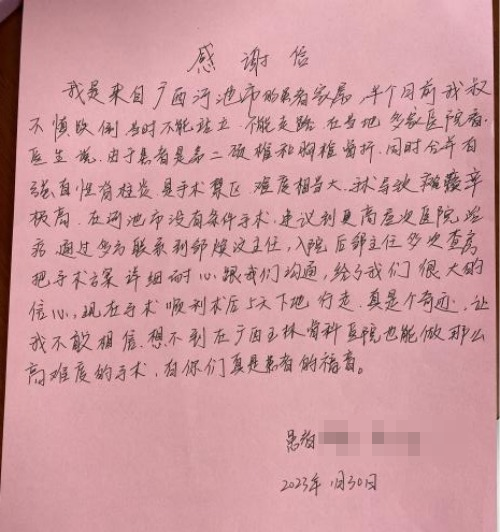 感谢信
我是来自广西河池市的患者家属,半个月前我叔
不慎跌倒当时不能站立、不能走路在当地多家医院看,
医生说,由于患者是第二颈椎和胸椎骨折,同时合并有
强直性脊柱炎是手术禁区,难度相当大、手术导致瘫痪率
极高、在河池市没有条件手术,建议到更高层次医院治
疗,通过多方联系到邹主任,入院后邹主任多次查房
把手术方案详细耐心跟我们沟通,给了我们很大的
信心,现在手术顺利术后5天下地行走、真是个奇迹,让
我不敢相信、想不到在广西玉林骨科医院也能做那么
高难度的手术,有你们真是患者的福音。
患者
2023年 月30日